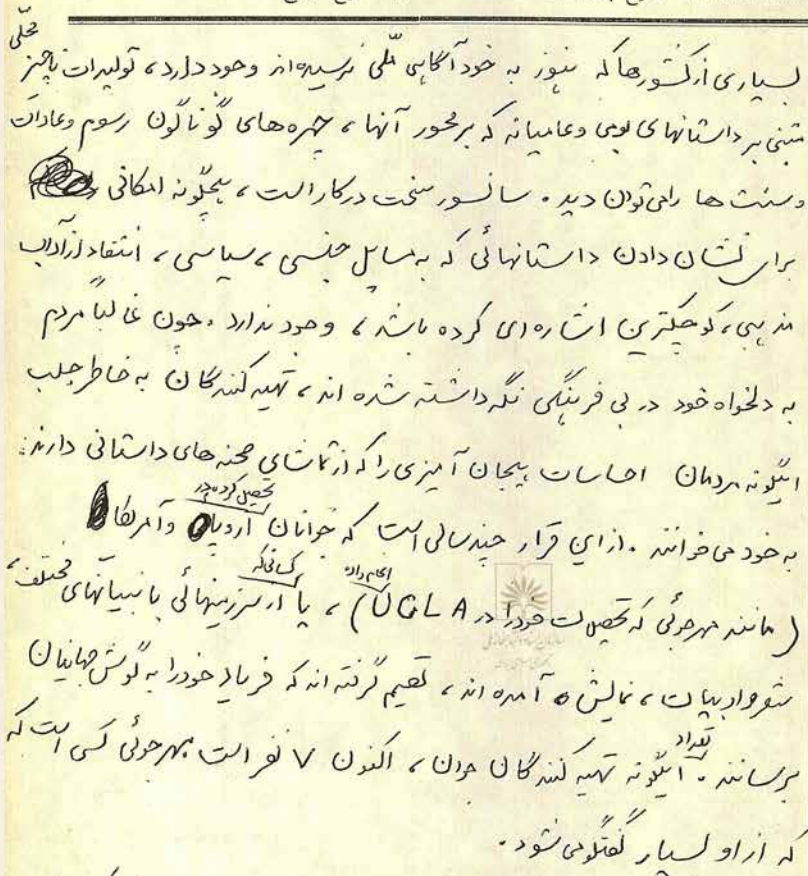 محلی
بسیاری از کشورها که هنوز به خودآگاهی ملی نرسیده‌اند وجود دارد، تولیدات ناچیز
مبتنی بر داستانهای بومی و عامیانه که بر محور آنها، چهره‌های گوناگون رسوم و عادات
و سنت ها را می توان دید. سانسور سخت در کار است، هیچگونه امکانی
برای نشان دادن داستانهائی که به مسایل جنسی، سیاسی، انتقاد از آداب
مذهبی، کوچکترین اشاره‌ای کرده باشد، وجود ندارد. چون غالباً مردم
به دلخواه خود در بی فرهنگی نگه داشته شده اند، تهیه کنندگان به خاطر جلب
اینگونه مردمان احساسات هیجان آمیزی را که از تماشای صحنه های داستانی دارند
به خود می خوانند. از این قرار چند سالی است که جوانان تحصیل کرده در اروپا و آمریکا
(مانند مهرجوئی که تحصیلات خود را در UCLA انجام داده)، یا کسانی که از سرزمینهائی با بنیانهای مختلف،
شعر و ادبیات، نمایش آمده اند، تصمیم گرفته اند که فریاد خود را به گوش جهانیان
برسانند. تعداد اینگونه تهیه کنندگان جوان، اکنون ۷ نفر است مهرجوئی کسی است که
که از او بسیار گفتگو می شود.